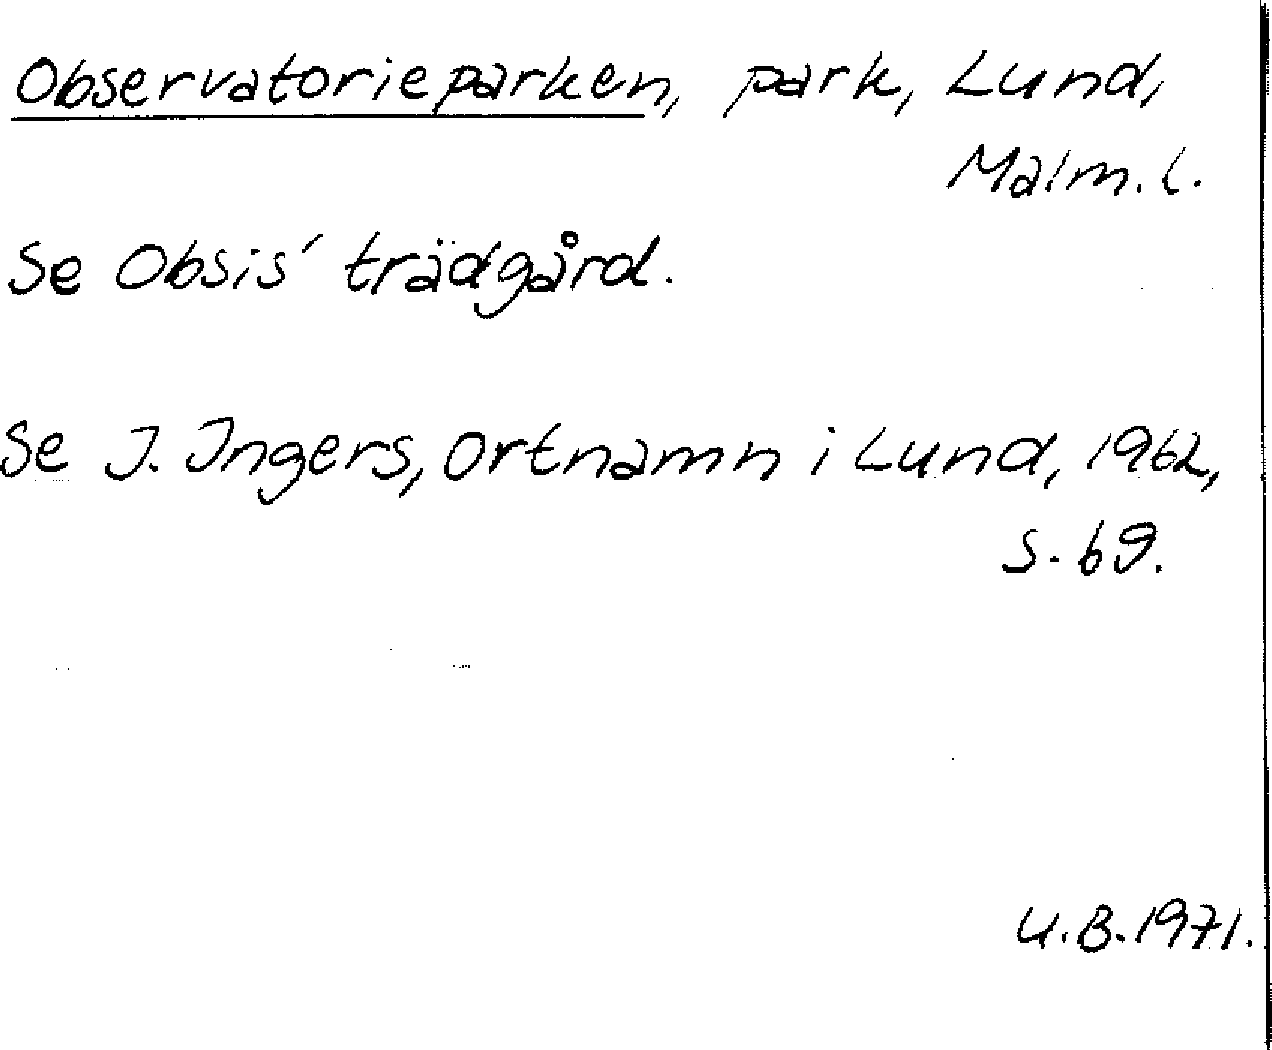 Observatorieparken, park, Lund,
Malm. l.
Se Obsis' trädgård.
Se J. Ingers, Ortnamn i Lund, 1962,
s. 69.
U.B. 1971.